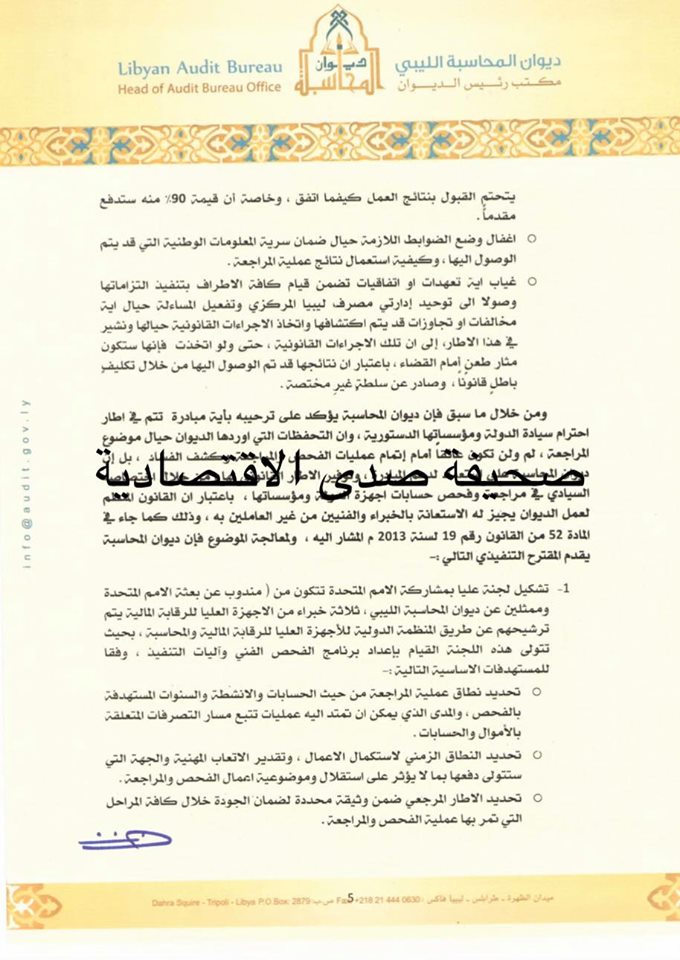 Libyan Audit Bureau
Head of Audit Bureau Office
ديوان المحاسبة
ديوان المحاسبة الليبي
مكتب رئيس الديوان
يتحتم القبول بنتائج العمل كيفما اتفق ، وخاصة أن قيمة 90٪ منه ستدفع
مقدماً .
○ اغفال وضع الضوابط اللازمة حيال ضمان سرية المعلومات الوطنية التي قد يتم
الوصول اليها ، وكيفية استعمال نتائج عملية المراجعة .
○ غياب اية تعهدات او اتفاقيات تضمن قيام كافة الاطراف بتنفيذ التزاماتها
وصولا الى توحيد إدارتي مصرف ليبيا المركزي وتفعيل المساءلة حيال اية
مخالفات او تجاوزات قد يتم اكتشافها واتخاذ الاجراءات القانونية حيالها ونشير
في هذا الاطار، إلى ان تلك الاجراءات القانونية ، حتى ولو اتخذت فإنها ستكون
مثار طعن أمام القضاء ، باعتبار ان نتائجها قد تم الوصول اليها من خلال تكليف
باطل قانوناً ، وصادر عن سلطة غير مختصة .
ومن خلال ما سبق فإن ديوان المحاسبة يؤكد على ترحيبه بأية مبادرة تتم في اطار
احترام سيادة الدولة ومؤسساتها الدستورية ، وان التحفظات التي اوردها الديوان حيال موضوع
المراجعة ، لم ولن تكون أمام إتمام عمليات الفحص كشف ، بل إن
صحيفة صدى الاقتصادية
ديوان المحاسبة
السيادي في مراجعة وفحص حسابات اجهزة ومؤسساتها ، باعتبار ان القانون
لعمل الديوان يجيز له الاستعانة بالخبراء والفنيين من غير العاملين به ، وذلك كما جاء في
المادة 52 من القانون رقم 19 لسنة 2013 م المشار اليه ، ولمعالجة الموضوع فإن ديوان المحاسبة
يقدم المقترح التنفيذي التالي :-
1- تشكيل لجنة عليا بمشاركة الامم المتحدة تتكون من ( مندوب عن بعثة الامم المتحدة
وممثلين عن ديوان المحاسبة الليبي ، ثلاثة خبراء من الاجهزة العليا للرقابة المالية يتم
ترشيحهم عن طريق المنظمة الدولية للأجهزة العليا للرقابة المالية والمحاسبة ، بحيث
تتولى هذه اللجنة القيام بإعداد برنامج الفحص الفني وآليات التنفيذ ، وفقا
للمستهدفات الاساسية التالية :-
○ تحديد نطاق عملية المراجعة من حيث الحسابات والانشطة والسنوات المستهدفة
بالفحص ، والمدى الذي يمكن ان تمتد اليه عمليات تتبع مسار التصرفات المتعلقة
بالأموال والحسابات .
○ تحديد النطاق الزمني لاستكمال الاعمال ، وتقدير الاتعاب المهنية والجهة التي
ستتولى دفعها بما لا يؤثر على استقلال وموضوعية اعمال الفحص والمراجعة .
○ تحديد الاطار المرجعي ضمن وثيقة محددة لضمان الجودة خلال كافة المراحل
التي تمر بها عملية الفحص والمراجعة .
info@audit.gov.ly
5
ميدان الظهرة - طرابلس - ليبيا فاكس : 0630 444 21 218+ Fax ص.ب Dahra Squire - Tripoli - Libya P.O.Box: 2879